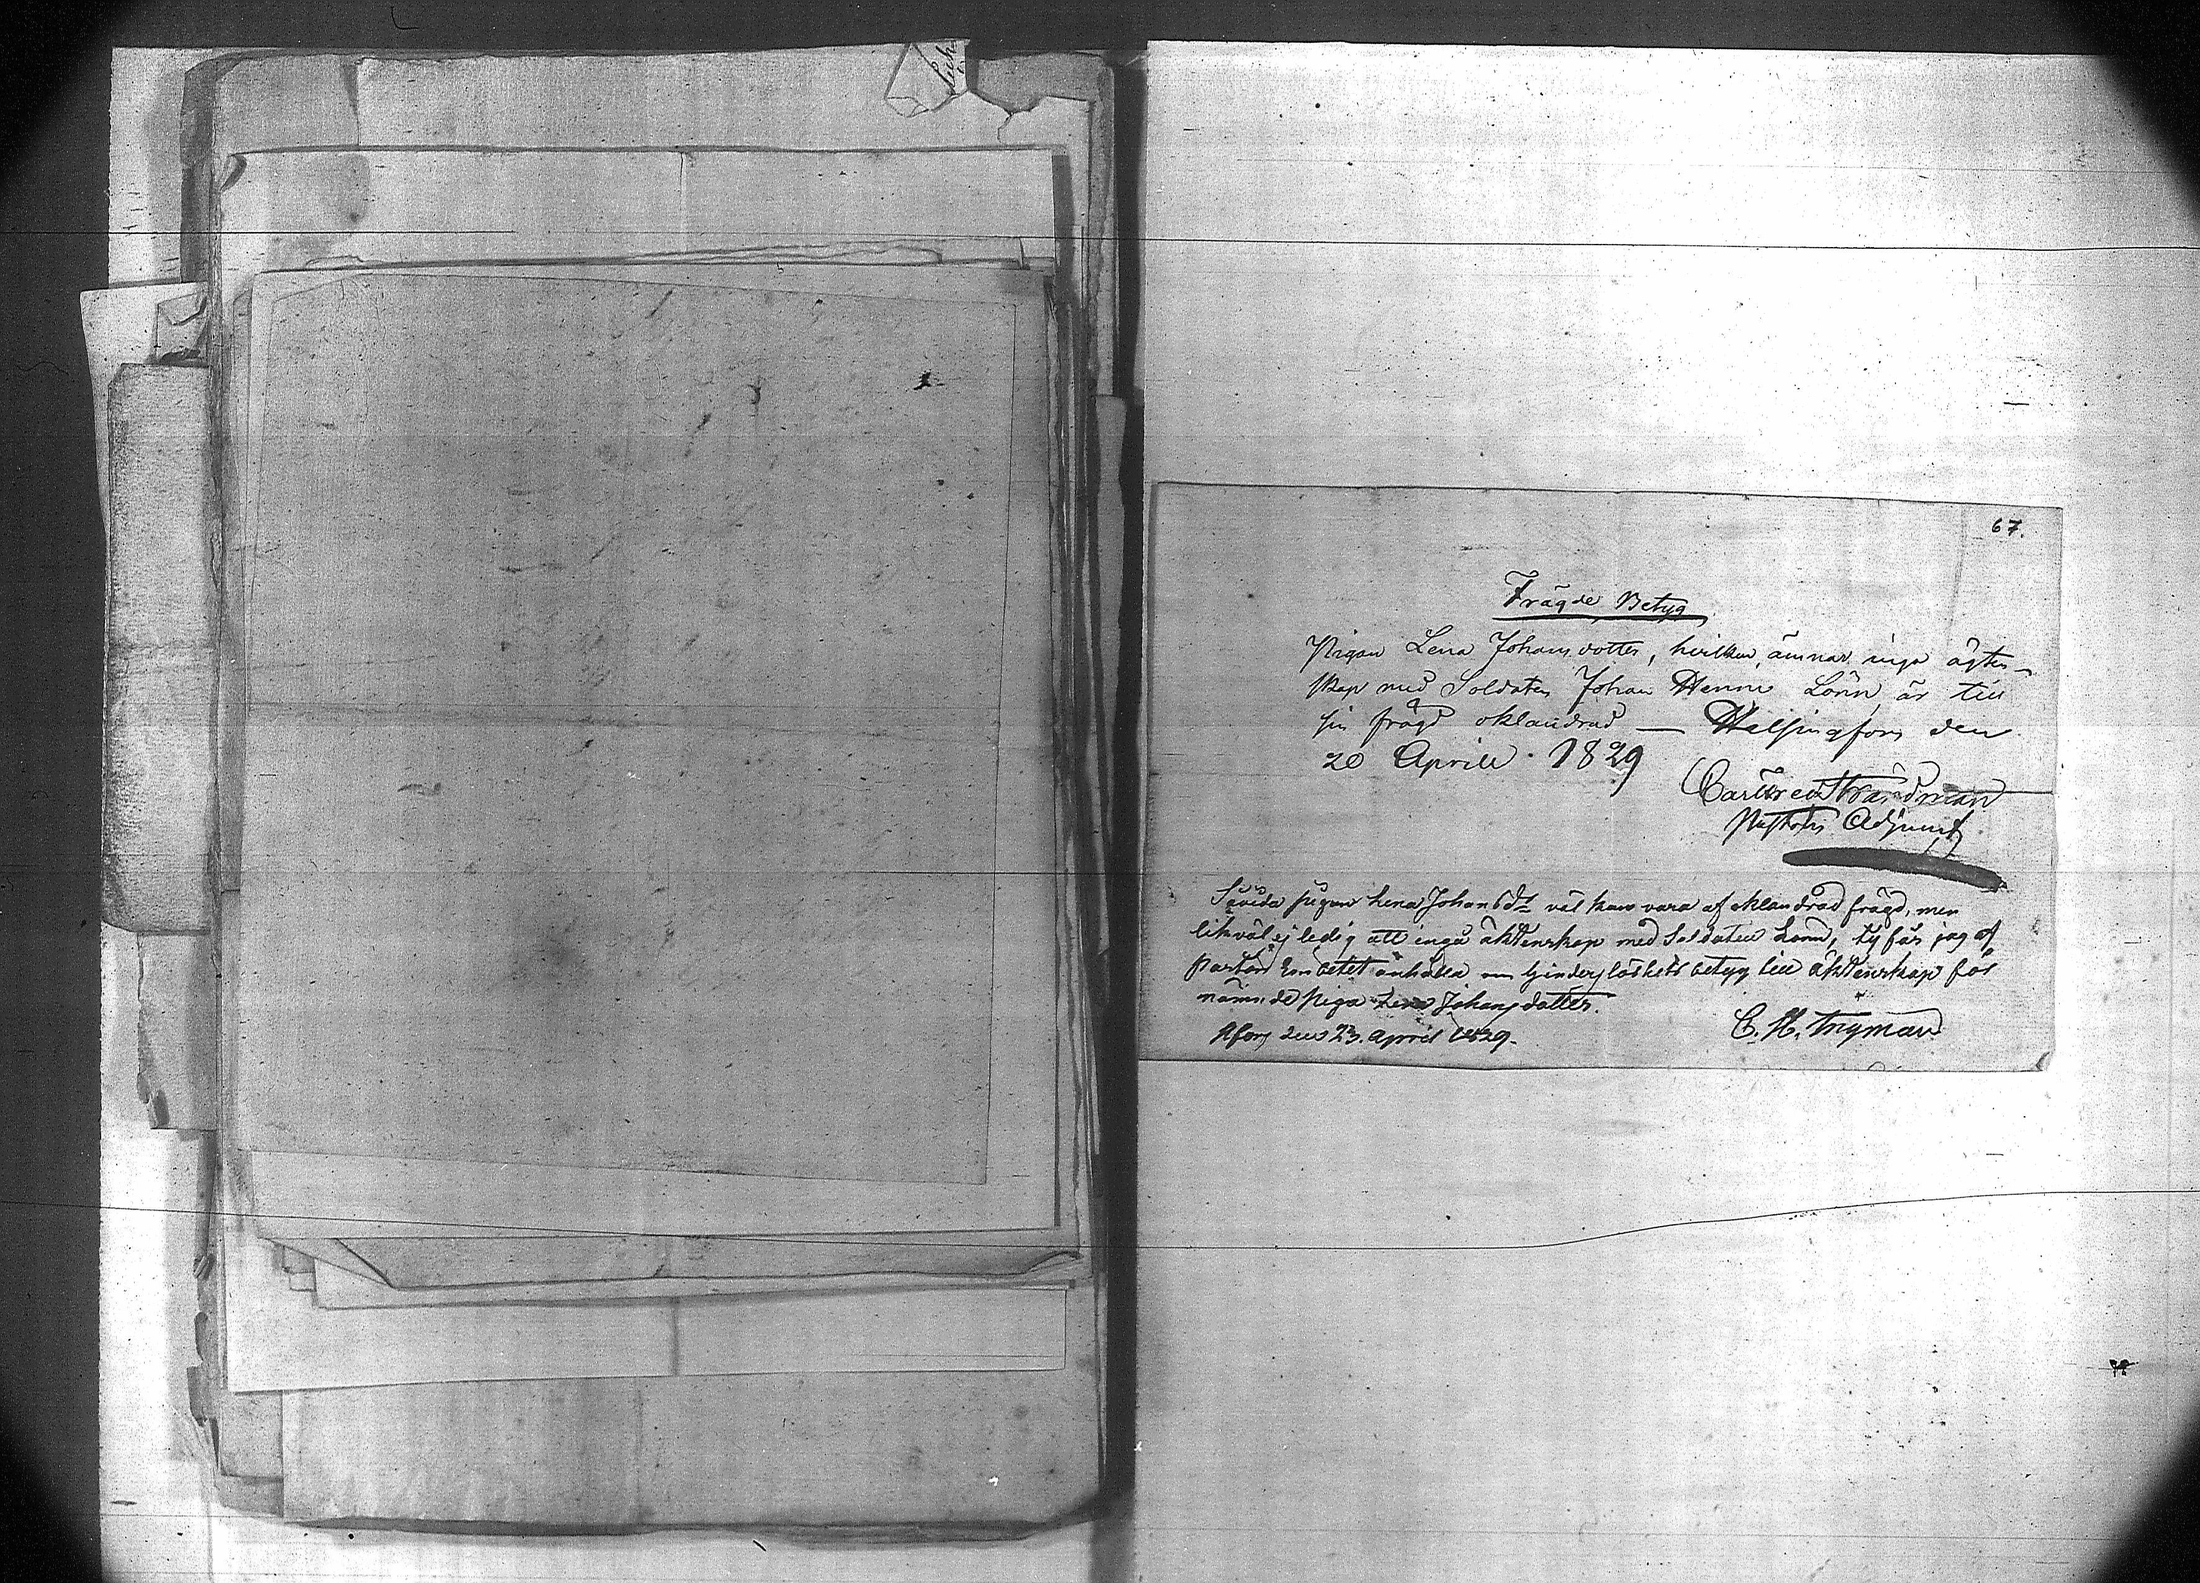 67.
Frägde Betyg
Pigan Lena Johansdotter, hvilken ämnar ingå ägten-
skap med Soldaten Johan Henric Lönn, är till
sin frägd oklandrad — Helsingfors den
20 Aprill 1829
Strandman
Pastors Adjunct
Såvida pigan Lena Johansdt väl kan vara af oklandrad frägd, men
likväl ej ledig att ingå äktenskap med Soldaten Lönn, ty får jag af
Pastors Embetet anhålla om hinderslöshets betyg till äktenskap för
nämnde Piga Lena Johansdotter.
Hfors den 23. April 1829.